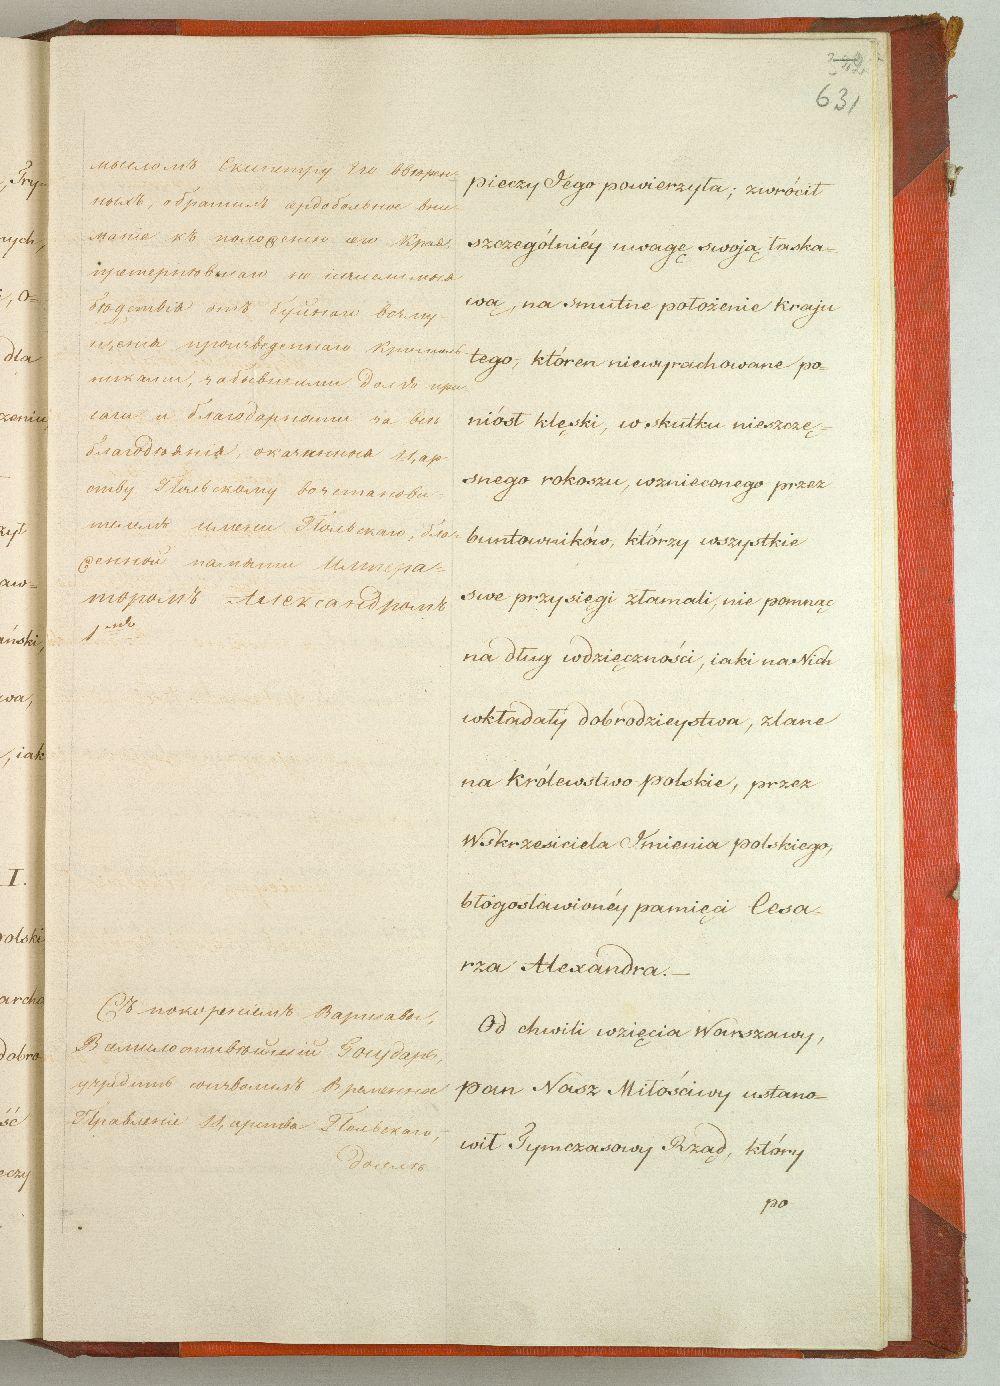 631
мысломъ Скипетру Его ввѣрен-
ныхъ, обратилъ сердобольное вни-
маніе къ положенію сего Края
претерпѣвшаго неисчислимыя
бѣдствія отъ буйнаго возму-
щенія произведеннаго крамоль-
никами, забывшими долгъ при-
сяги и благодарности за всѣ
благодѣянія, оказанныя Цар-
ству Польскому возстанови-
телемъ имени Польскаго, бла-
женной памяти Импера-
торомъ Александромъ
1мъ
Съ покореніемъ Варшавы,
Всемилостивѣйшій Государь,
учредить соизволилъ Временное
Правленіе Царства Польскаго,
pieczy Jego powierzyła; zwrócił
szczególniéy uwagę swoją łaska-
wą, na smutne położenie kraju
tego, któren niewyrachowane po-
niósł klęski, w skutku nieszczę-
snego rokoszu, wznieconego przez
buntowników, którzy wszystkie
swe przysięgi złamali, nie pomnąc
na dług wdzięczności, iaki na Nich
wkładały dobrodzieystwa, zlane
na Królewstwo polskie, przez
Wskrzesiciela Jmienia polskiego,
błogosławionéy pamięci Cesa-
rza Alexandra.—
Od chwili wzięcia Warszawy,
pan Nasz Miłościwy ustano-
wił Tymczasowy Rząd, który
po